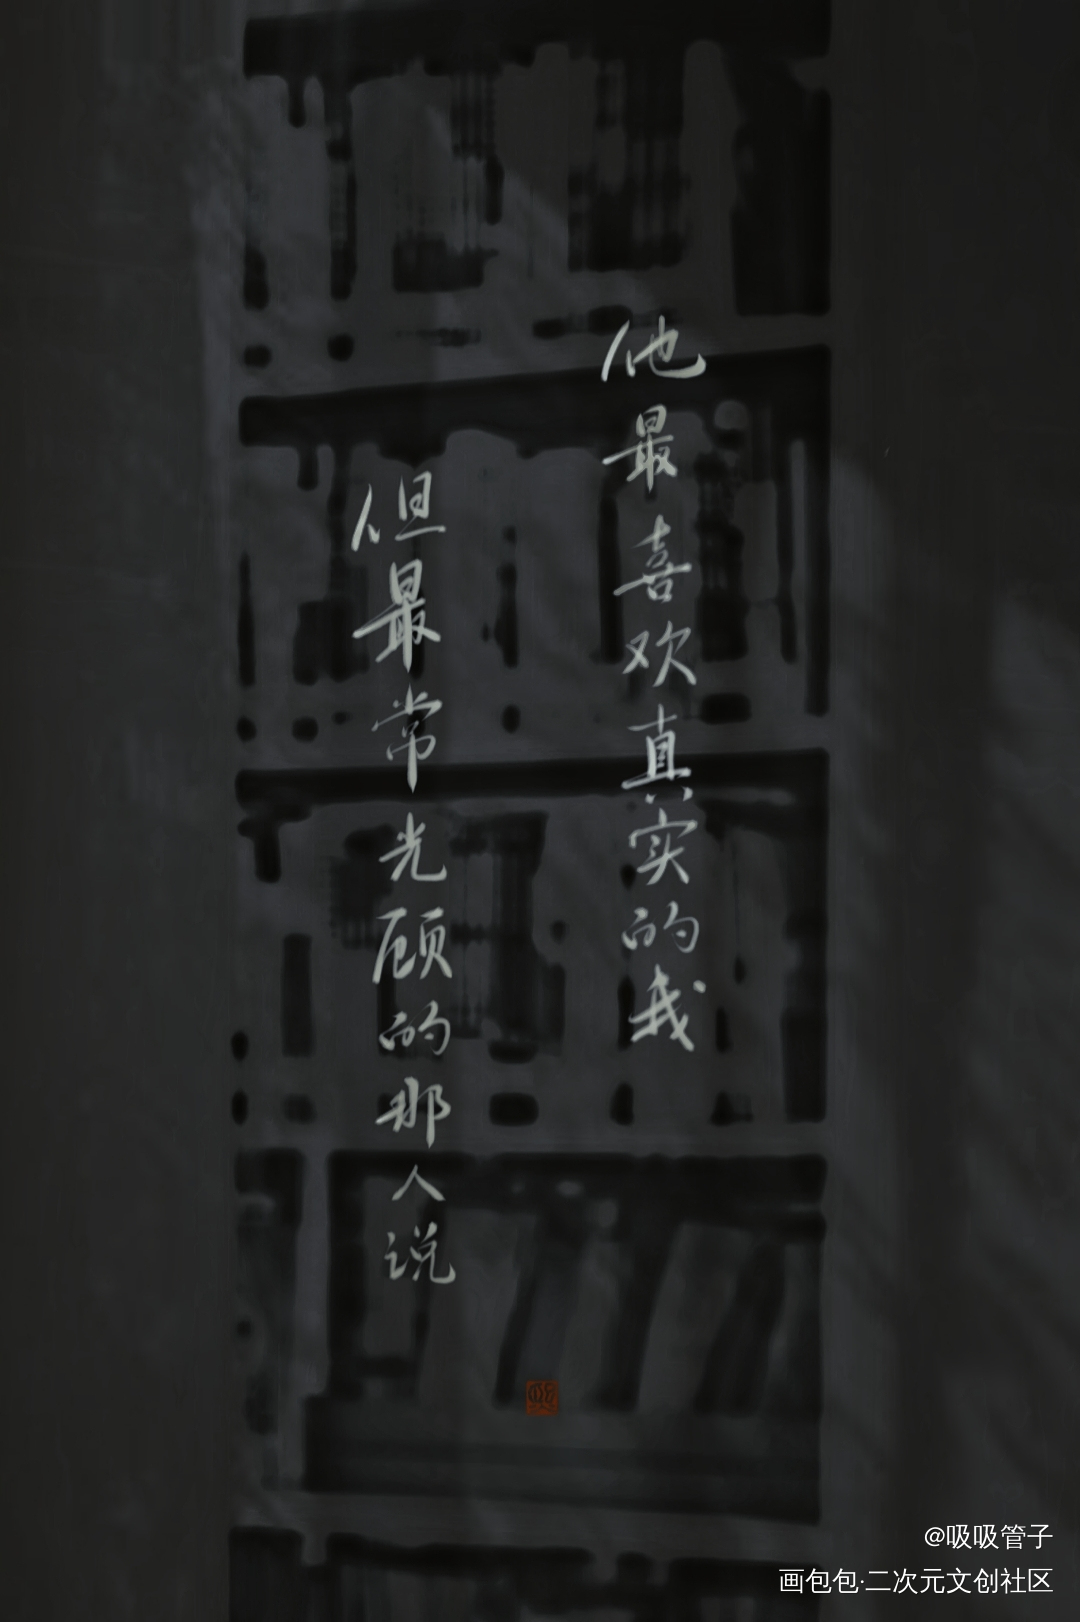 他最喜欢真实的我
但最常光顾的那人说
@吸吸管子
画包包·二次元文创社区